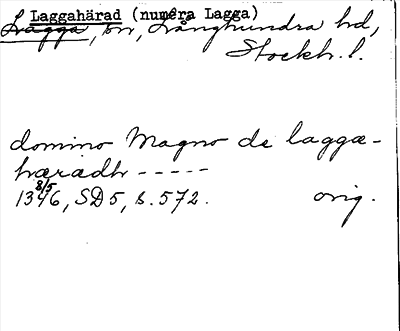 Laggahärad (numera Lagga)
Lagga, sn, Långhundra hd,
Stockh. l.
domino Magno de laggæ-
hæradh -----
1346 8/5, SD 5, s. 572. orig.